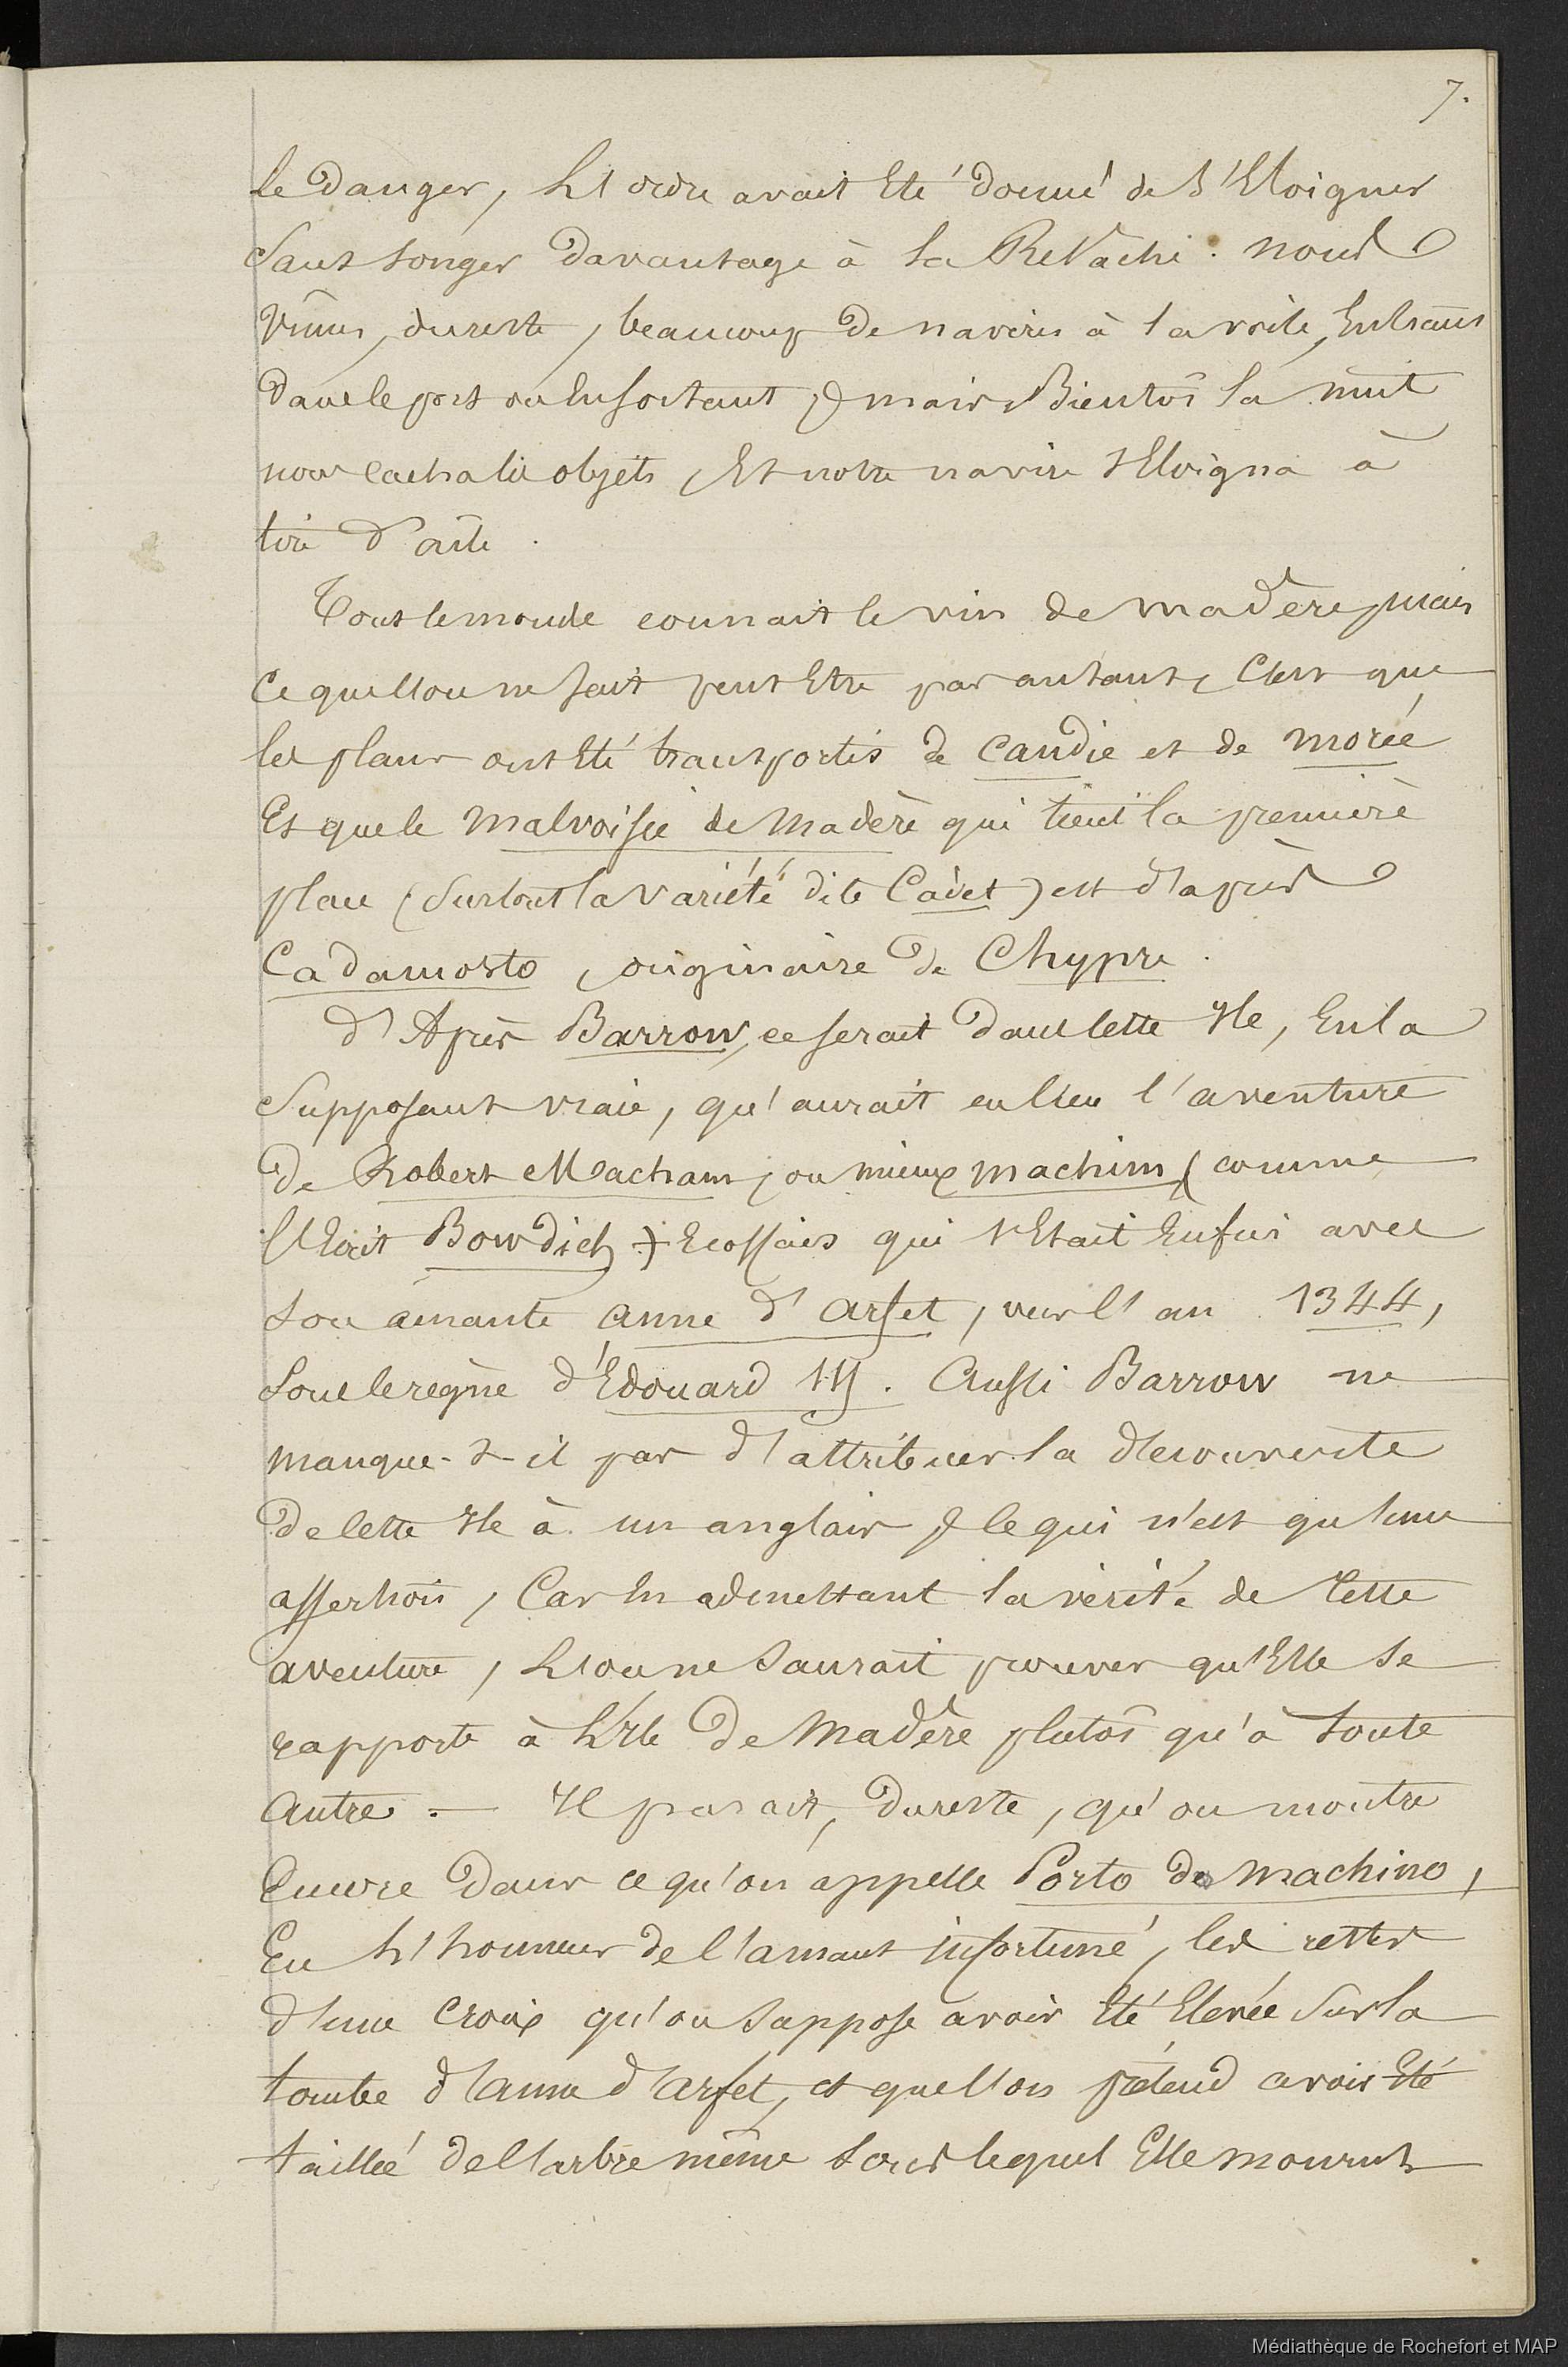 7.
le danger, et l'ordre avait été donné de s'éloigner
sans songer davantage à la Relâche. nous
vîmes, du reste, beaucoup de navires à la voile, entrant
dans le port ou en sortant, mais Bientôt la nuit
nous cacha les objets, et notre navire s'éloigna à
tire d'aile.
Tout le monde connait le vin de madère, mais
ce que l'on ne sait peut être pas autant, c'est que
les plans ont été transportés de Candie et de morée
et que le malvoisie de Madère qui tient la première
place (surtout la variété dite Cadet) est d'après
Cadamosto, originaire de Chypre.
d'Après Barrow, ce serait dans cette île, en la
supposant vraie, qu'aurait eu lieu l'aventure
de Robert Macham, ou mieux machim (comme
l'écrit Bowdich) Ecossais qui s'était enfui avec
son amante anne d'arfet, vers l'an 1344,
sous le règne d'Edouard III. Aussi Barrow ne
manque-t-il pas d'attribuer la découverte
de cette île à un anglais, ce qui n'est qu'une
assertion, car en admettant la vérité de cette
aventure, l'on ne saurait prouver qu'elle se
rapporte à l'île de Madère plutôt qu'à toute
autre. — Il parait, du reste, qu'on montre
encore dans ce qu'on appelle Porto do machino,
en l'honneur de l'amant infortuné, les restes
d'une croix qu'on suppose avoir été élevée sur la
tombe d'anna d'arfet, et que l'on prétend avoir été
taillée de l'arbre même sous lequel Elle mourut
Médiathèque de Rochefort et MAP